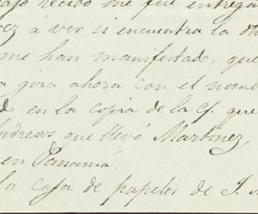 ajo recibo me fue entrega
ez á ver si encuentra la ot
me han manifestad, que
a gira ahora con el nomb
d en la copia de la Cf. que
ndrews que llevó Martinez,
en Panamá.
la caja de papeles de J. A